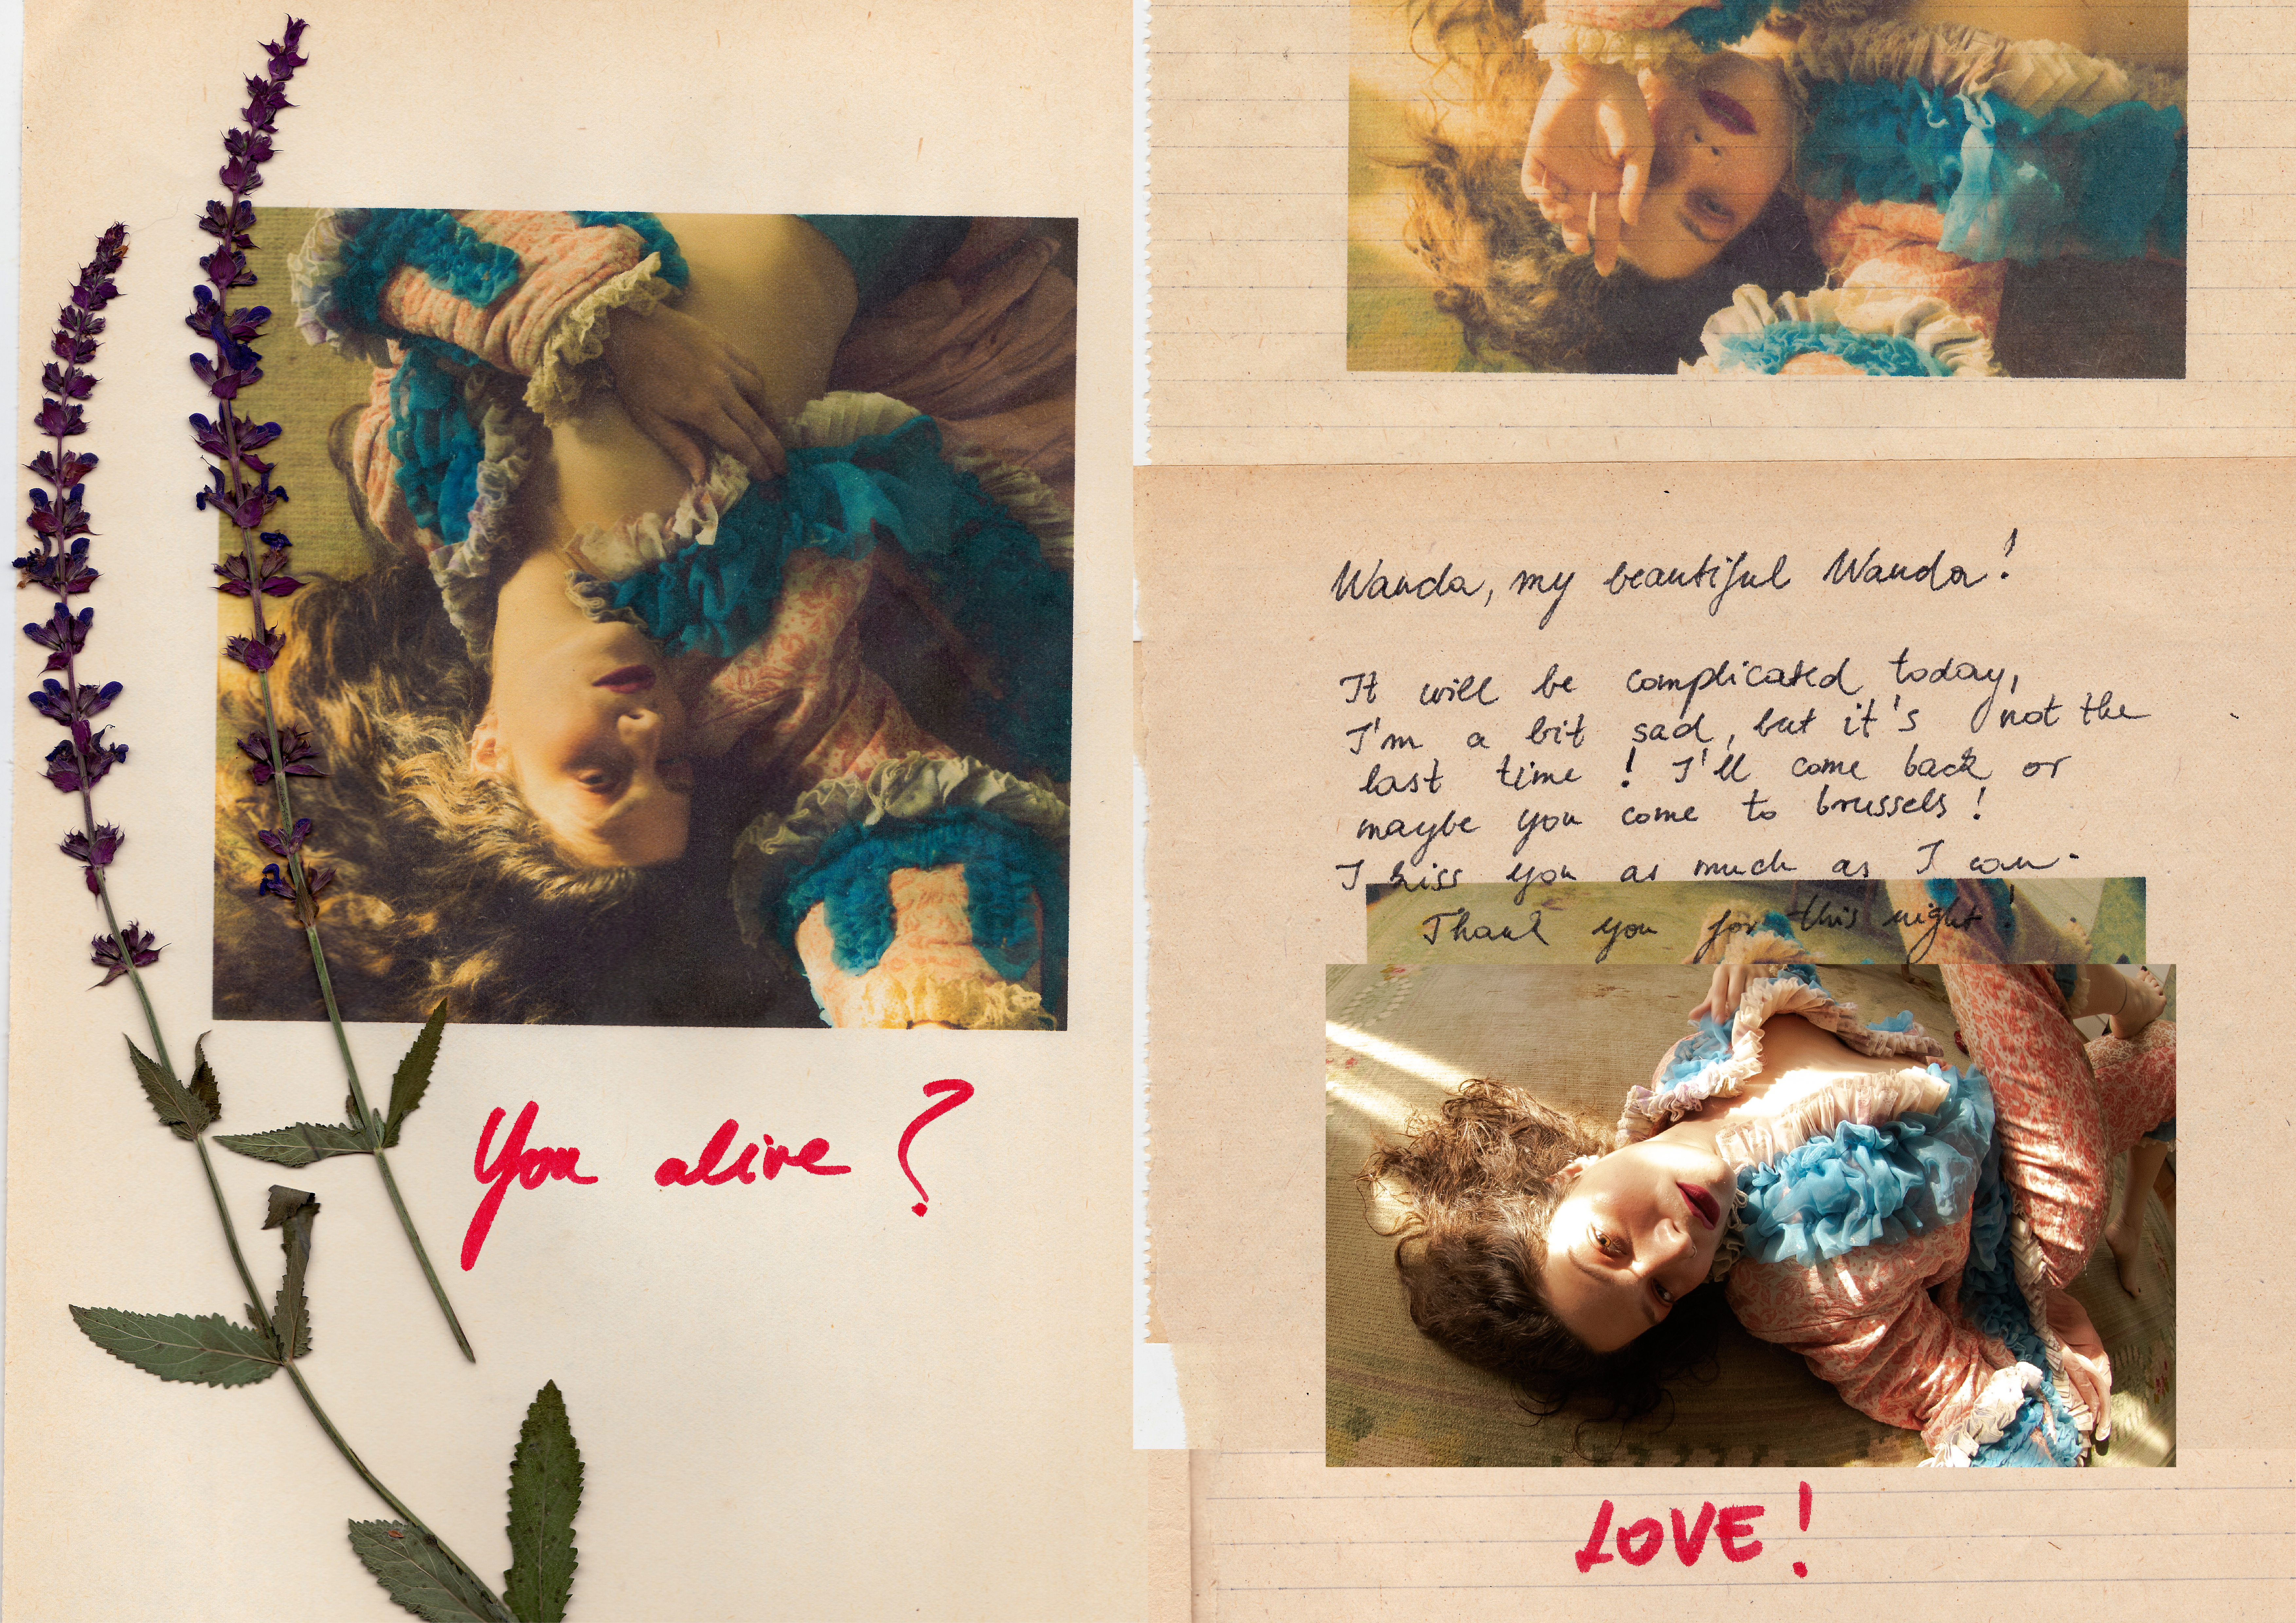 You alive?
Wanda, my beautiful Wanda!
It will be complicated today,
I'm a bit sad, but it's not the
last time! I'll come back or
maybe you come to brussels!
I kiss you as much as I can.
Thank you for this night!
LOVE!